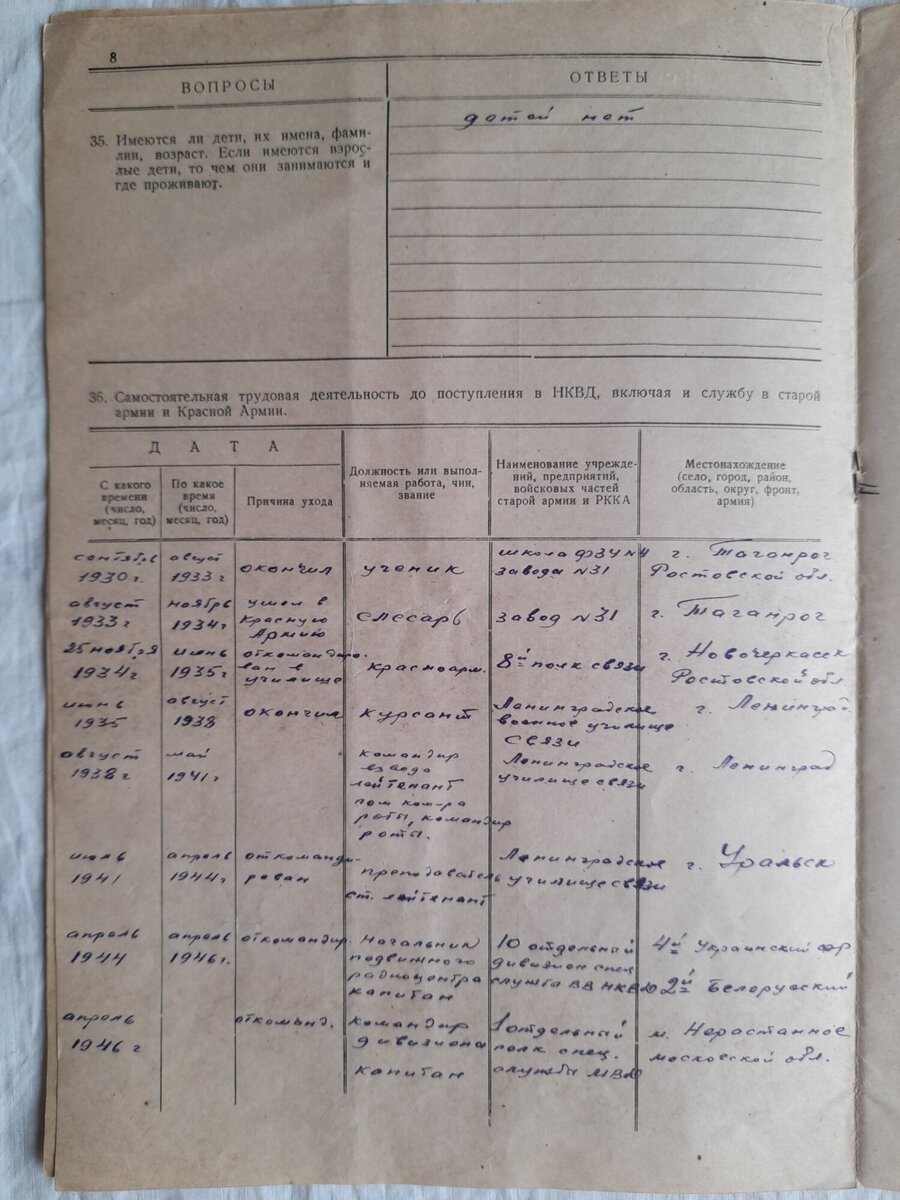 8
ВОПРОСЫ
ОТВЕТЫ
35. Имеются ли дети, их имена, фами-
лии, возраст. Если имеются взрос-
лые дети, то чем они занимаются и
где проживают.
детей нет
36. Самостоятельная трудовая деятельность до поступления в НКВД, включая и службу в старой
армии и Красной Армии.
ДАТА
С какого
времени
(число,
месяц, год)
По какое
время
(число,
месяц, год)
Причина ухода
Должность или выпол-
няемая работа, чин,
звание
Наименование учрежде-
ний, предприятий,
войсковых частей
старой армии и РККА
Местонахождение
(село, город, район,
область, округ, фронт,
армия)
сентябрь
1930 г.
август
1933 г
окончил
ученик
школа ФЗУ N4
завода N31
г. Таганрог
Ростовской обл.
август
1933 г
ноябрь
1934 г
ушел в
Красную
Армию
слесарь
завод N31
г. Таганрог
25 ноября
1934 г
июнь
1935 г
откомандиро-
ван в
училище
красноарм.
8й полк связи
г. Новочеркасск
Ростовской обл.
июнь
1935
август
1938
окончил
курсант
Ленинградское
военное училище
связи
г. Ленинград
август
1938 г
май
1941 г
командир
взвода
лейтенант
пом ком-ра
роты, командир
роты.
Ленинградское
училище связи
г. Ленинград
июль
1941
апрель
1944 г
откоманди-
рован
преподаватель
ст. лейтенант
Ленинградское
училище связи
г. Уральск
апрель
1944
апрель
1946 г.
откомандир.
Начальник
подвижного
радиоцентра
капитан
10 отдельный
дивизион спец
служба ВВ НКВД
4й Украинский фр
2й Белорусский
апрель
1946 г
откоманд.
командир
дивизиона
капитан
1 отдельный
полк спец.
службы МВД
м. Нерастанное
московской обл.